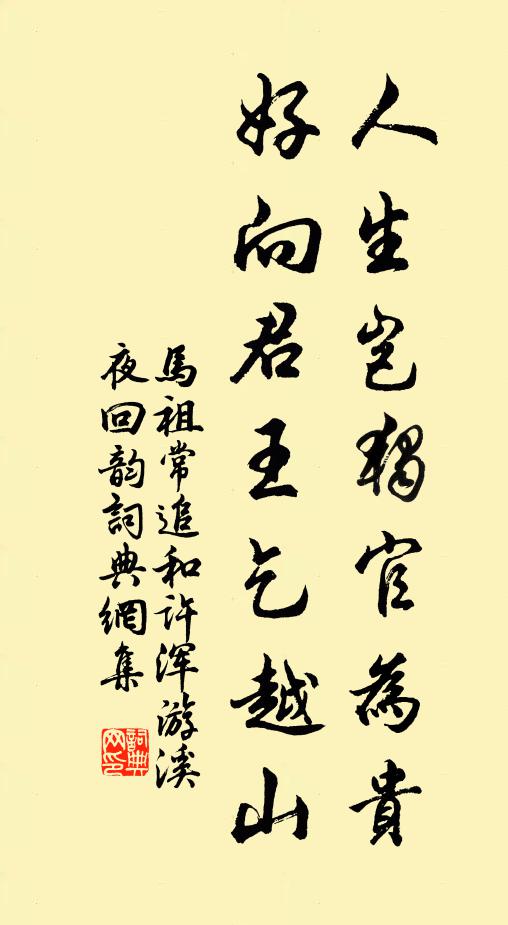 人生岂獨官為貴
好向君王乞越山
馬祖常追和许渾游溪
夜回韵詞典網集
詞典
网印